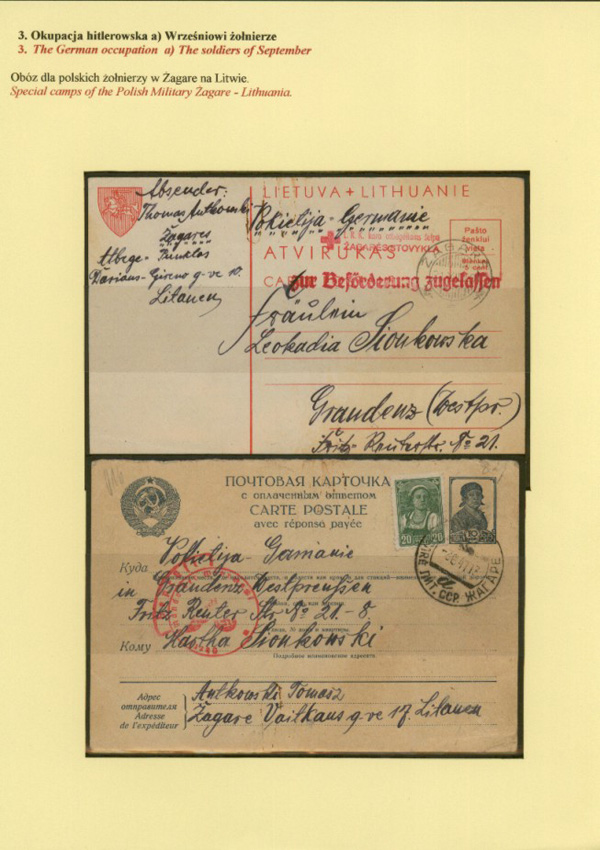 3. Okupacja hitlerowska a) Wrześniowi żołnierze
3. The German occupation a) The soldiers of September
Obóz dla polskich żołnierzy w Żagare na Litwie.
Special camps of the Polish Military Żagare - Lithuania.
Absender:
Thomas Antkowski
Žagares
Litauen
LIETUVA + LITHUANIE
Vokietija-Germanie
ŽAGARES STOVYKLA
ATVIRUKAS
Pašto
ženklui
vieta
zur Beförderung zugelassen
Fräulein
Leokadia Sionkowska
Graudenz (Westpr.)
Fritz-Reuterstr. No 21.
ПОЧТОВАЯ КАРТОЧКА
с оплаченным ответом
CARTE POSTALE
avec réponse payée
20 20
Куда Vokietija-Germanie
in Graudenz Westpreußen
Fritz Reuter Str No 21.-8
Кому Sionkowski
Подробное наименование адресата.
ССР. ЖАГАРЕ
Адрес
отправителя
Adresse
de l'expéditeur
Antkowski Tomasz
Žagare g-ve 17. Litauen